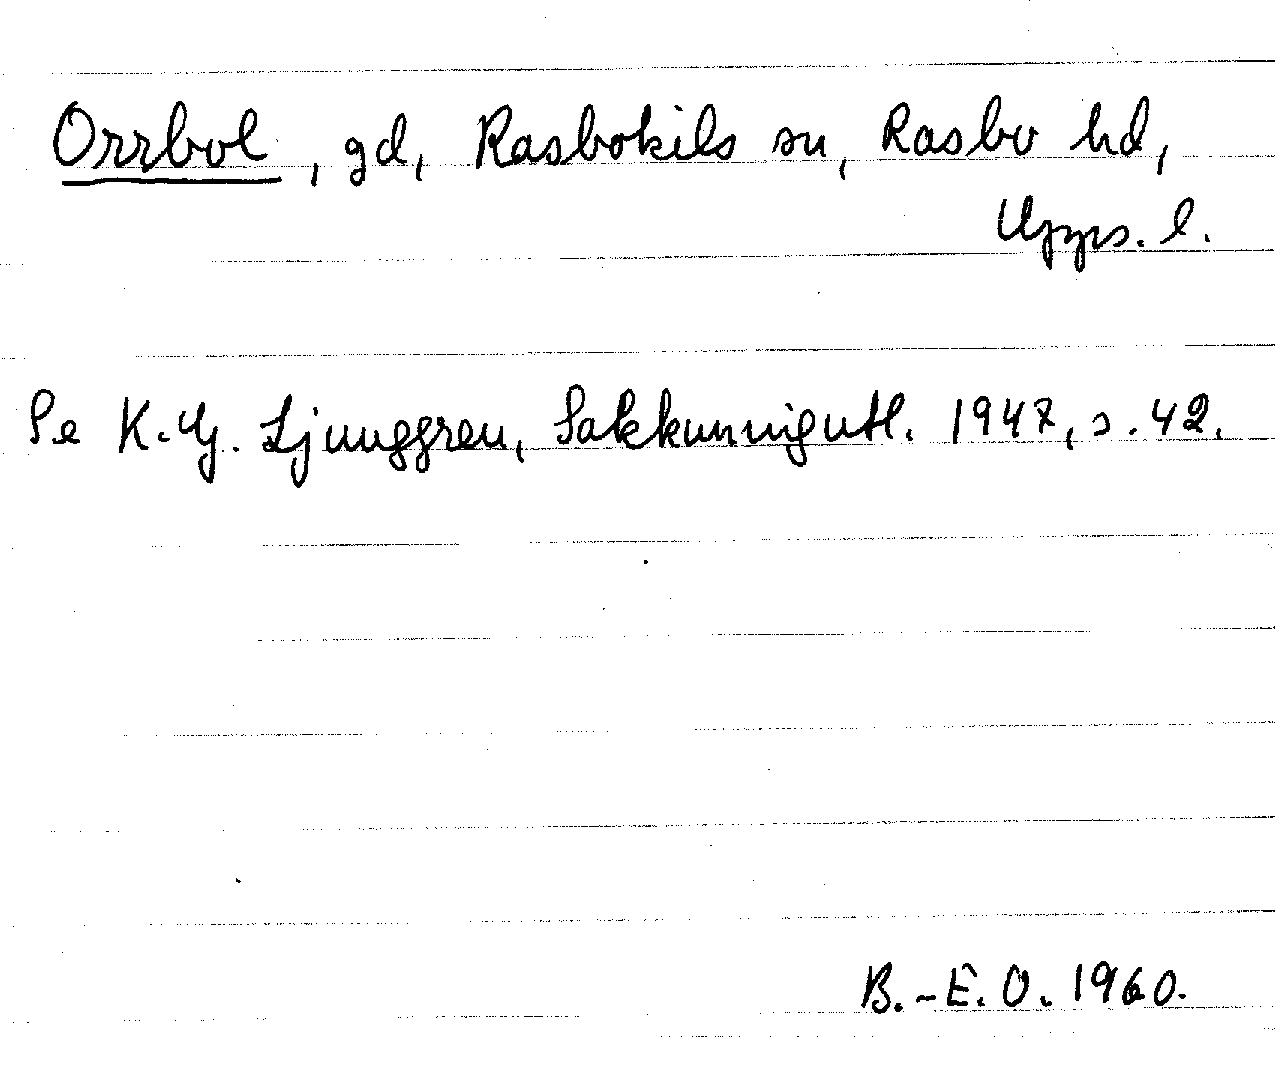 Orrbol, gd, Rasbokils sn, Rasbo hd,
Upps. l.
Se K.G. Ljunggren, Sakkunnigutl. 1947, s. 42.
B.-E.O. 1960.